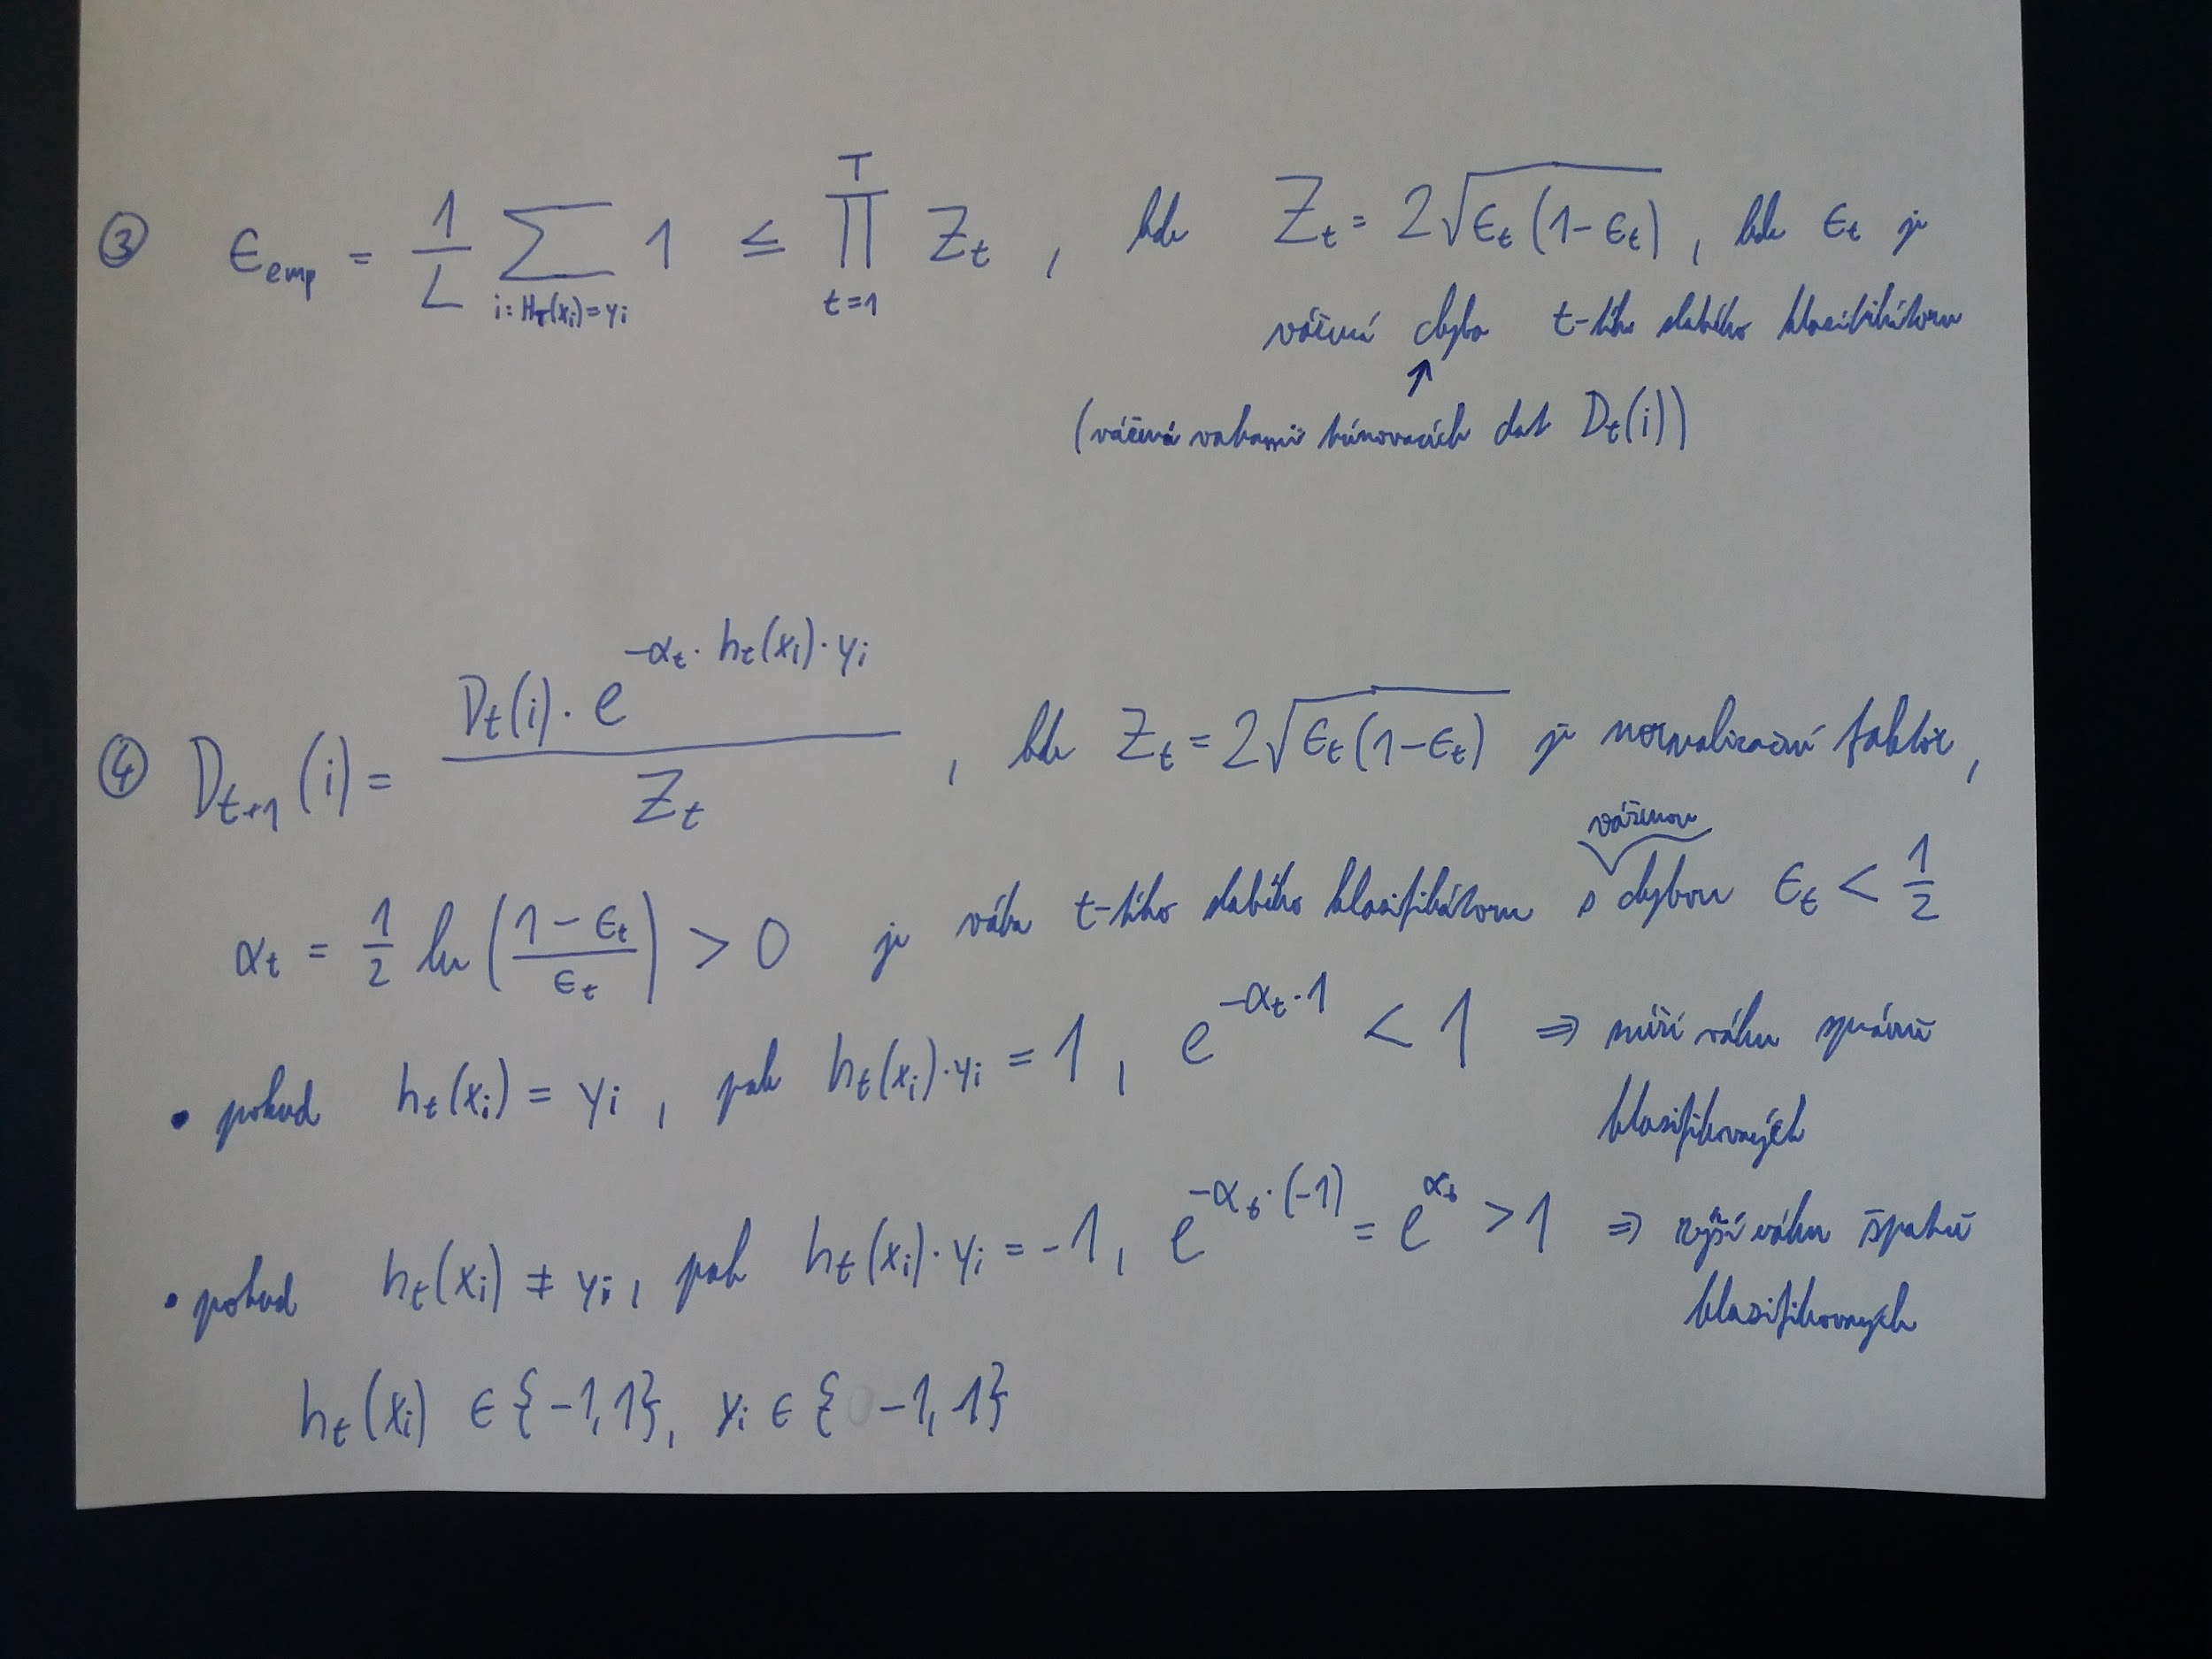 ③ ϵ_emp = 1/L ∑_{i: H_T(x_i)=y_i} 1 ≤ ∏_{t=1}^{T} Z_t , kde Z_t = 2√(ϵ_t(1-ϵ_t)) , kde ϵ_t je
vážená chyba t-tého slabého klasifikátoru
↑
(vážená vahami trénovacích dat D_t(i))
④ D_{t+1}(i) = (D_t(i) · e^{-α_t · h_t(x_i) · y_i}) / Z_t , kde Z_t = 2√(ϵ_t(1-ϵ_t)) je normalizační faktor,
váženou
α_t = 1/2 ln((1-ϵ_t)/ϵ_t) > 0 je váha t-tého slabého klasifikátoru s chybou ϵ_t < 1/2
• pokud h_t(x_i) = y_i , pak h_t(x_i)·y_i = 1 , e^{-α_t·1} < 1 ⇒ níží váhu správně
klasifikovaných
• pokud h_t(x_i) ≠ y_i , pak h_t(x_i)·y_i = -1 , e^{-α_t·(-1)} = e^{α_t} > 1 ⇒ výší váhu špatně
klasifikovaných
h_t(x_i) ∈ {-1, 1} , y_i ∈ {-1, 1}